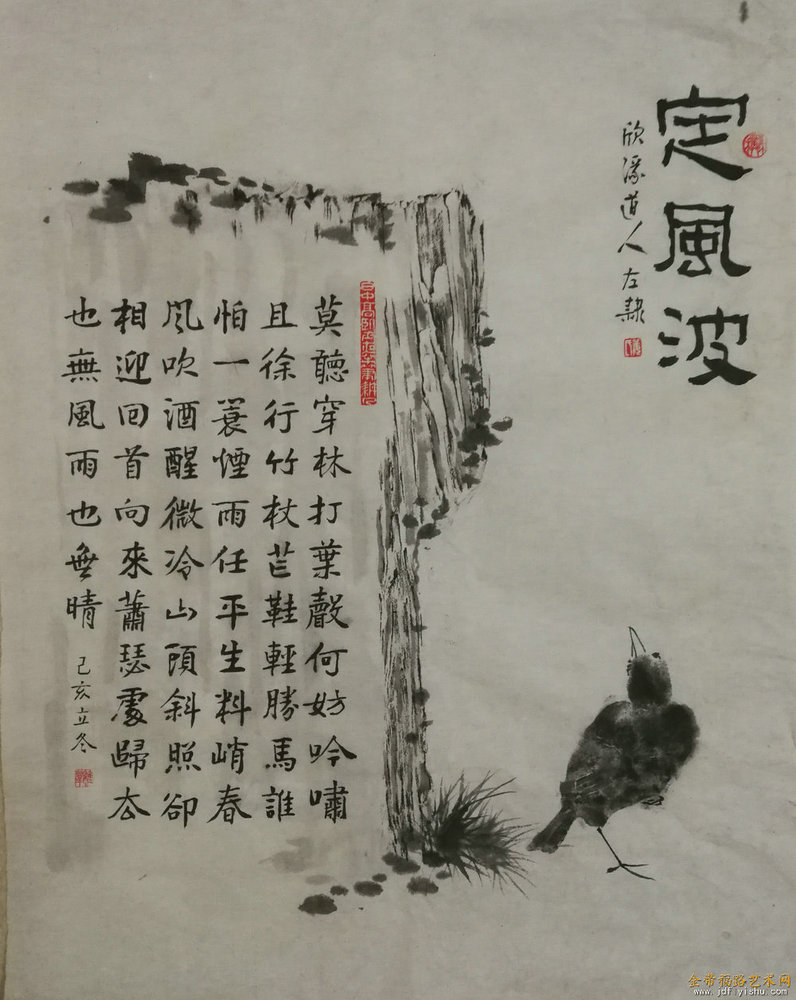 定風波
欣濠道人左隸
莫聽穿林打葉聲何妨吟嘯
且徐行竹杖芒鞋輕勝馬誰
怕一蓑煙雨任平生料峭春
风吹酒醒微冷山頭斜照卻
相迎回首向來蕭瑟處歸去
也無風雨也無晴
己亥立冬
www.jdflyishu.com